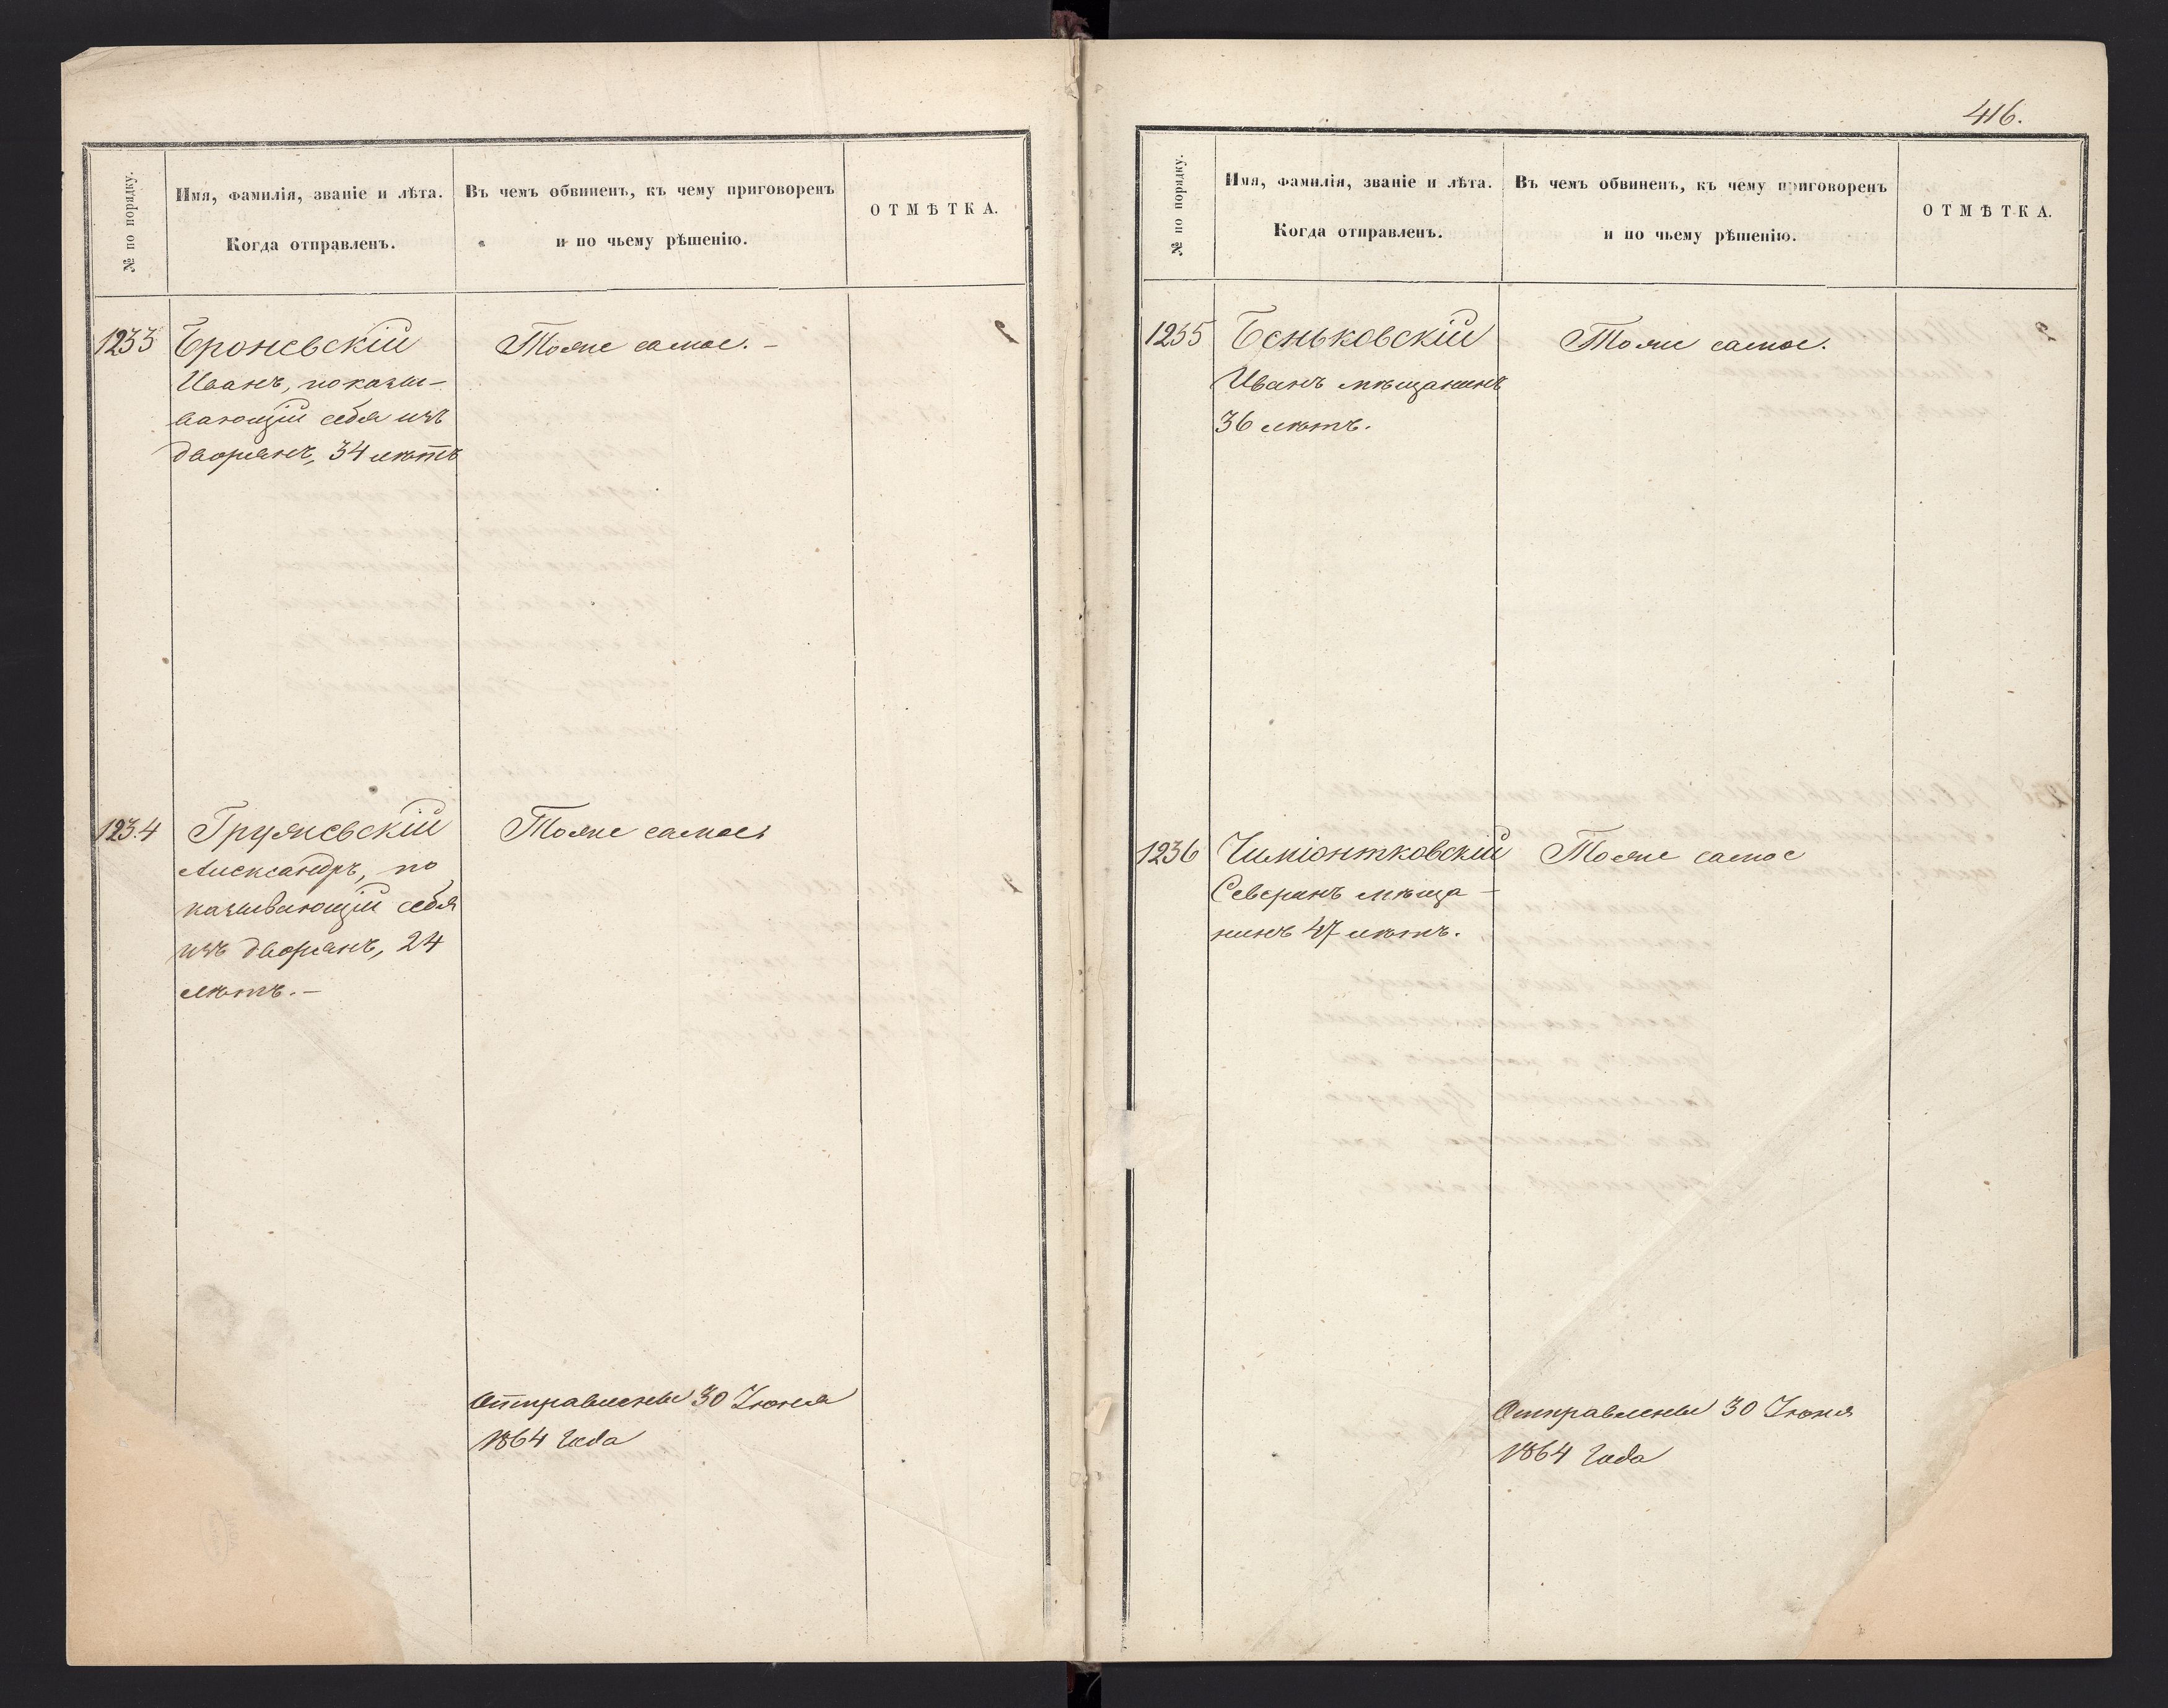 № по порядку.
Имя, фамилія, званіе и лѣта.
Когда отправленъ.
Въ чемъ обвиненъ, къ чему приговоренъ
и по чьему рѣшенію.
ОТМѢТКА.
1233
Броневскій
Иванъ, показы-
вающій себя изъ
дворянъ, 34 лѣтъ
Тоже самое. -
1234
Гружевскій
Александръ, по
казывающій себя
изъ дворянъ, 24
лѣтъ. -
Тоже самое
Отправлены 30 Іюня
1864 года
416.
№ по порядку.
Имя, фамилія, званіе и лѣта.
Когда отправленъ.
Въ чемъ обвиненъ, къ чему приговоренъ
и по чьему рѣшенію.
ОТМѢТКА.
1235
Беньковскій
Иванъ мѣщанинъ
36 лѣтъ.
Тоже самое.
1236
Северинъ мѣща-
нинъ 47 лѣтъ.
Тоже самое
Отправлены 30 Іюня
1864 года